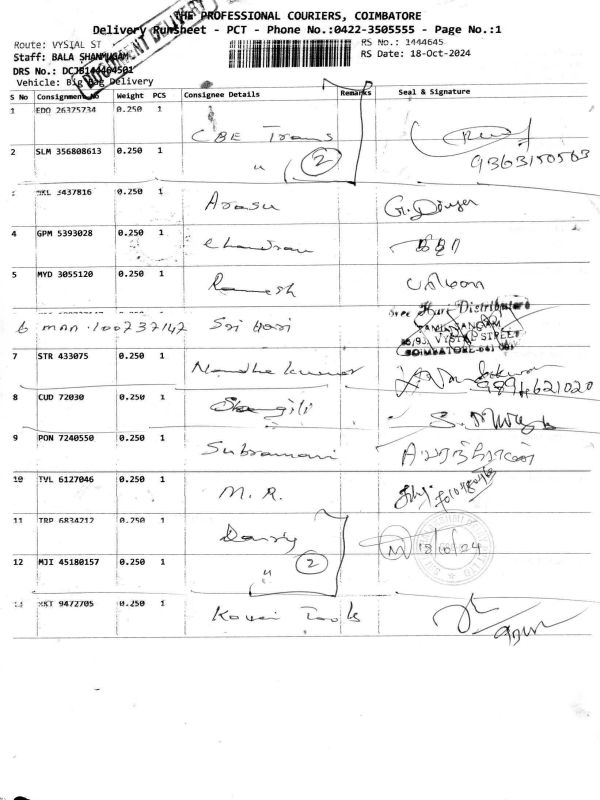 THE PROFESSIONAL COURIERS, COIMBATORE
Delivery Runsheet - PCT - Phone No.:0422-3505555 - Page No.:1
Route: VYSIAL ST RS No.: 1444645
Staff: BALA SHANMUGAM RS Date: 18-Oct-2024
DRS No.: DCJB144464501
Vehicle: Big Bag Delivery
S No Consignment No Weight PCS Consignee Details Remarks Seal & Signature
1 EDO 26375734 0.250 1 CBE Trans
2 SLM 356808613 0.250 1 " 2 9363150563
3437816 0.250 1 Arasu
4 GPM 5393028 0.250 1 Chandran
5 MYD 3055120 0.250 1 Ramesh
6 MAA 100737142 Sri Hari Sree Hari Distributors
VYSIAL STREET
COIMBATORE-641 001
7 STR 433075 0.250 1 Nandha kumar 9894621020
8 CUD 72030 0.250 1
9 PON 7240550 0.250 1 Subramani
10 TVL 6127046 0.250 1 M. R.
11 TRP 6834212 0.250 1 18/10/24
12 MJI 45180157 0.250 1 " 2
9472705 0.250 1 Kovai Tools